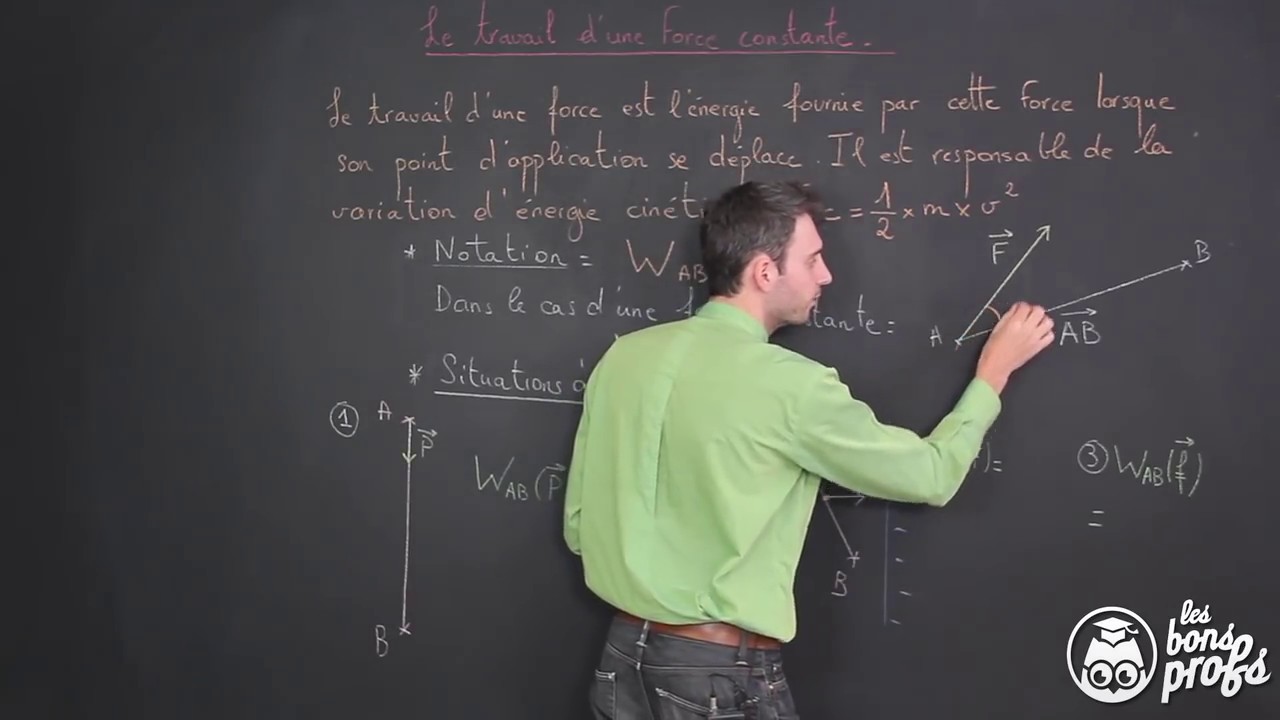 Le travail d'une force constante.
Le travail d'une force est l'énergie fournie par cette force lorsque
son point d'application se déplace. Il est responsable de la
variation d'énergie = 1/2 × m × v²
* Notation = W AB
F
B
Dans le cas d'une
A
AB
* Situations
① A
P
W AB (P
③ W AB (f)
=
B
B
les
bons
profs